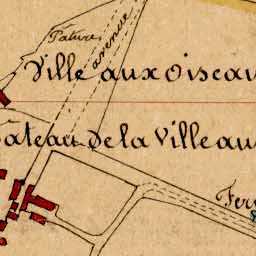 Pature
avenue
Ville aux oiseau
hateau de la Ville au
Fer